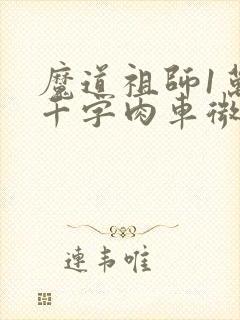 魔道祖師1萬
千字肉車微
連韦唯